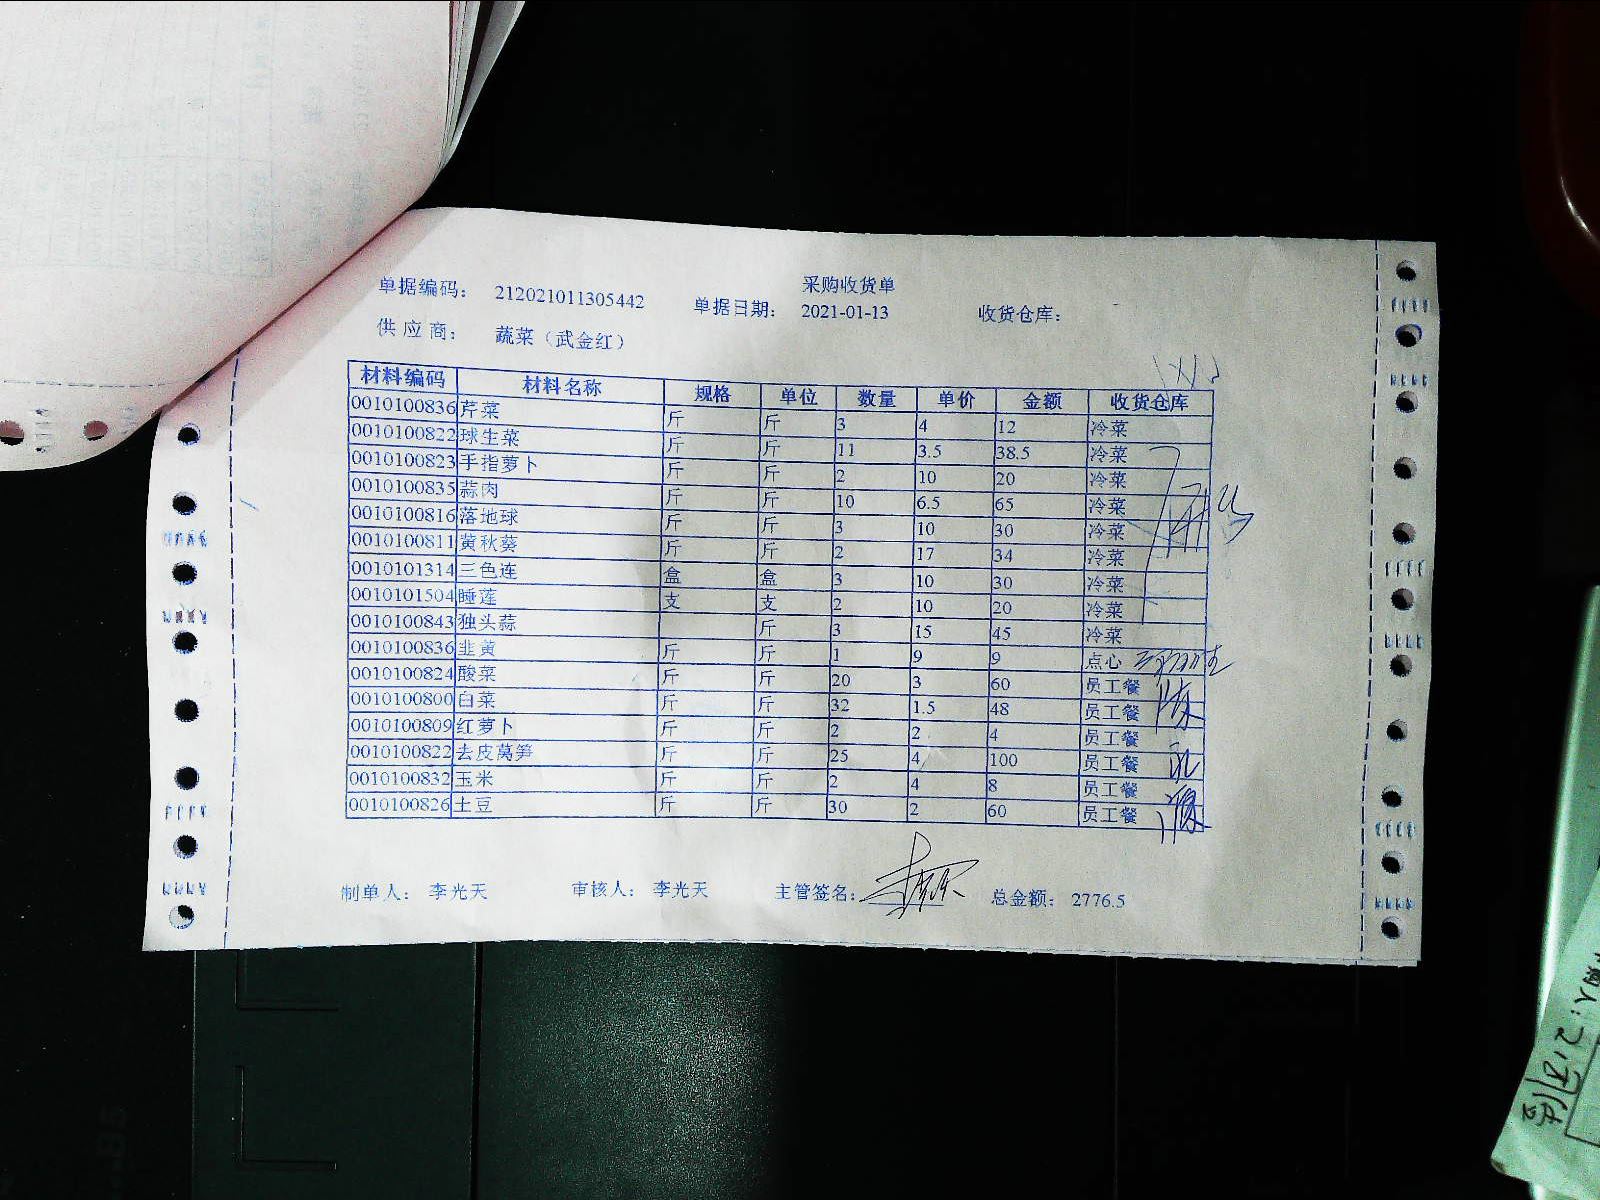 采购收货单
单据编码： 212021011305442 单据日期： 2021-01-13 收货仓库：
供应商： 蔬菜（武金红）
材料编码 材料名称 规格 单位 数量 单价 金额 收货仓库
0010100836 芹菜 斤 斤 3 4 12 冷菜
0010100822 球生菜 斤 斤 11 3.5 38.5 冷菜
0010100823 手指萝卜 斤 斤 2 10 20 冷菜
0010100835 蒜肉 斤 斤 10 6.5 65 冷菜
0010100816 落地球 斤 斤 3 10 30 冷菜
0010100811 黄秋葵 斤 斤 2 17 34 冷菜
0010101314 三色连 盒 盒 3 10 30 冷菜
0010101504 睡莲 支 支 2 10 20 冷菜
0010100843 独头蒜 斤 3 15 45 冷菜
0010100836 韭黄 斤 斤 1 9 9 点心
0010100824 酸菜 斤 斤 20 3 60 员工餐
0010100800 白菜 斤 斤 32 1.5 48 员工餐
0010100809 红萝卜 斤 斤 2 2 4 员工餐
0010100822 去皮莴笋 斤 斤 25 4 100 员工餐
0010100832 玉米 斤 斤 2 4 8 员工餐
0010100826 土豆 斤 斤 30 2 60 员工餐
制单人： 李光天 审核人： 李光天 主管签名： 总金额： 2776.5